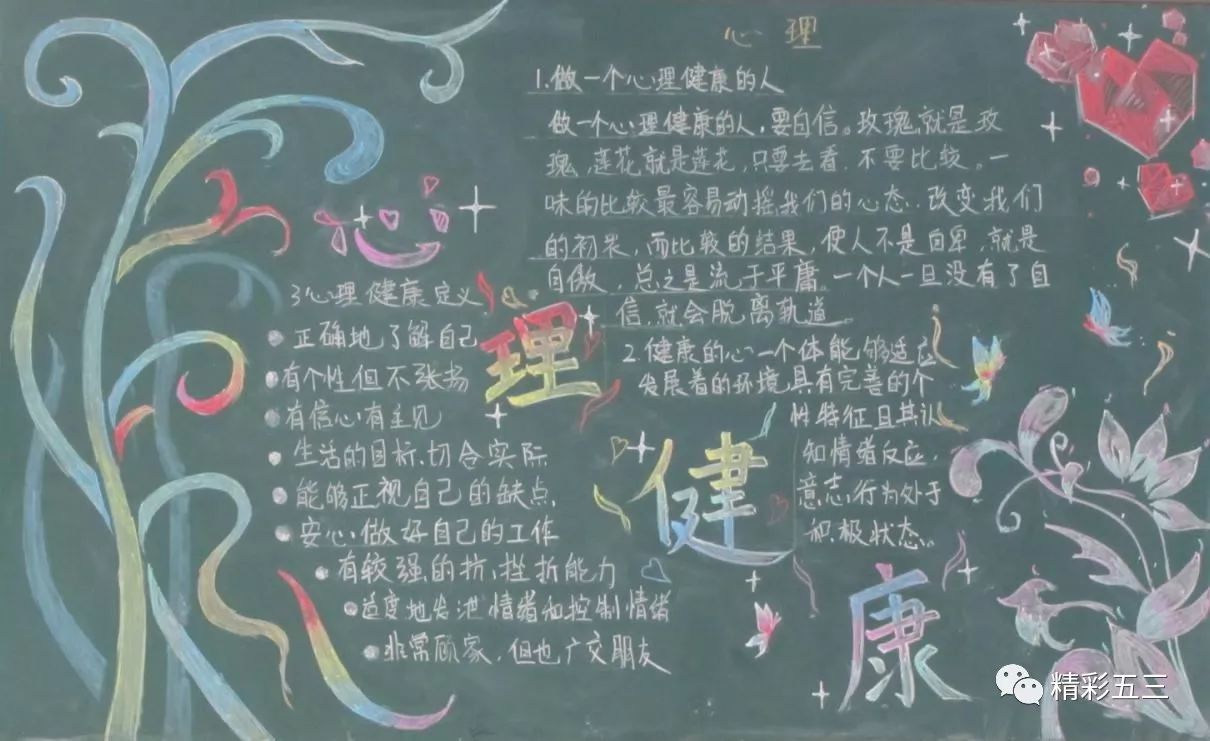 心理
1.做一个心理健康的人
做一个心理健康的人,要自信。玫瑰,就是玫
瑰,莲花就是莲花,只要去看,不要比较。一
味的比较最容易动摇我们的心态,改变我们
的初衷,而比较的结果,使人不是自卑,就是
自傲,总之是流于平庸。一个人一旦没有了自
信,就会脱离轨道。
2.健康的心一个体能够适应
发展着的环境,具有完善的个
性特征且其认
知情绪反应,
意志行为处于
积极状态。
3心理健康定义
正确地了解自己
有个性但不张扬
有信心有主见
生活的目标,切合实际
能够正视自己的缺点,
安心做好自己的工作
有较强的抗,挫折能力
适度地发泄情绪和控制情绪
非常顾家,但也广交朋友
心
理
健
康
精彩五三